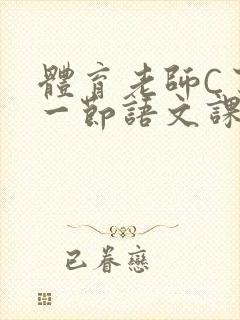 體育老師C
一節語文課
已眷戀